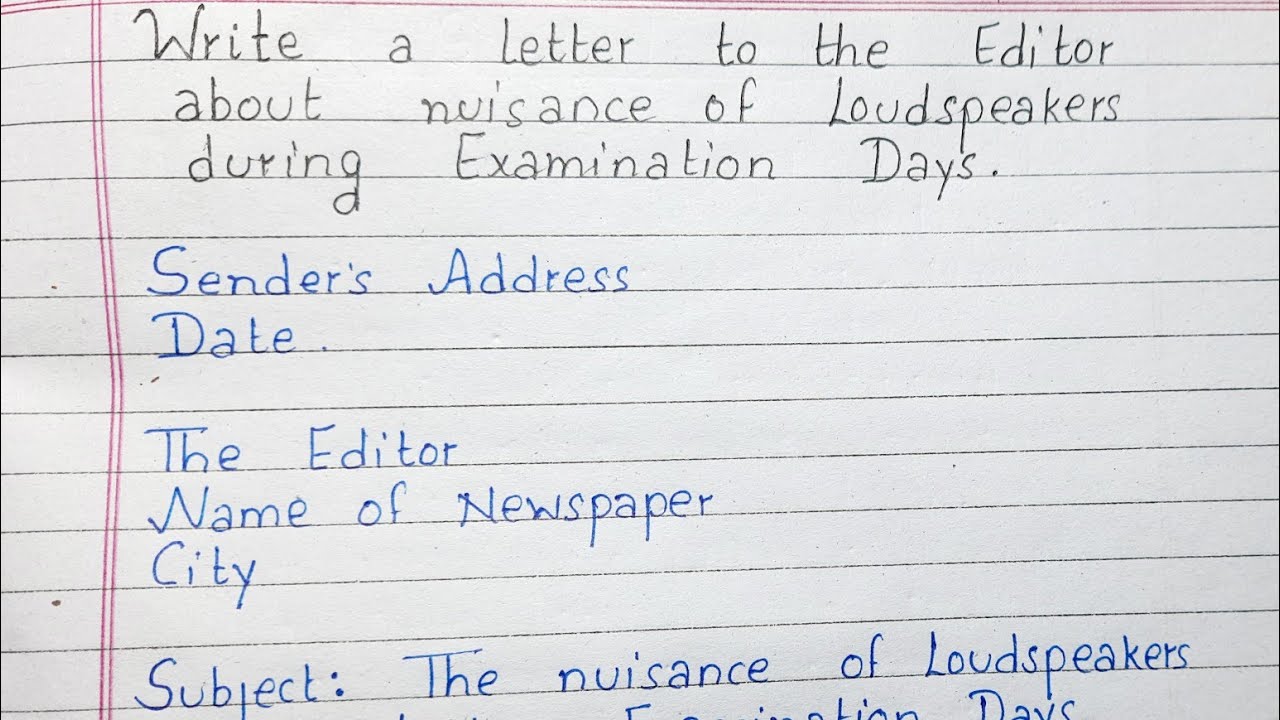 Write a letter to the Editor
about nuisance of Loudspeakers
during Examination Days.
Sender's Address
Date.
The Editor
Name of Newspaper
City
Subject: The nuisance of Loudspeakers
Examination Days